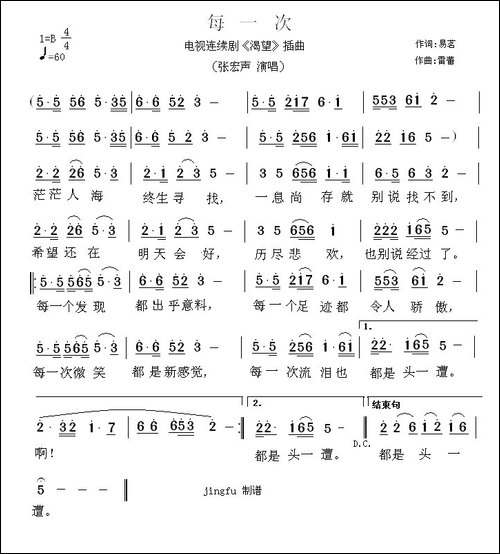 每一次
1=B 4/4
♩=60
电视连续剧《渴望》插曲
(张宏声 演唱)
作词:易茗
作曲:雷蕾
(5·5 56 5·35 6·6 52 3 - 5·5 217 6·1 553 61 2 -
5·5 56 5·35 6·6 52 3 - 5·5 256 1·61 22 165 5 -)
2·2 26 2·3 2·1 23 2 - 3 5 656 1·1 553 61 2 -
茫茫人海 终生寻找, 一息尚存就 别说找不到,
2·2 26 5·3 2·2 23 2 - 3 5 656 1 222 165 5 -
希望还在 明天会好, 历尽悲欢, 也别说经过了。
‖: 5·5 565 5·3 6·6 52 3 - 5·5 217 6·1 553 61 2 -
每一个发现 都出乎意料, 每一个足迹都 令人骄傲,
1.
5·5 565 5·3 6·6 52 3 - 5·5 256 1·61 22·165 5 -
每一次微笑 都是新感觉, 每一次流泪也 都是头一遭。
2.
结束句
2·32 1·7 6 6 653 2 - :‖ 22·165 5 - 2 2 6 1 2 6 1
D.C.
啊! 都是头一遭。 都是 头 一
5 - - - ‖
jingfu 制谱
遭。